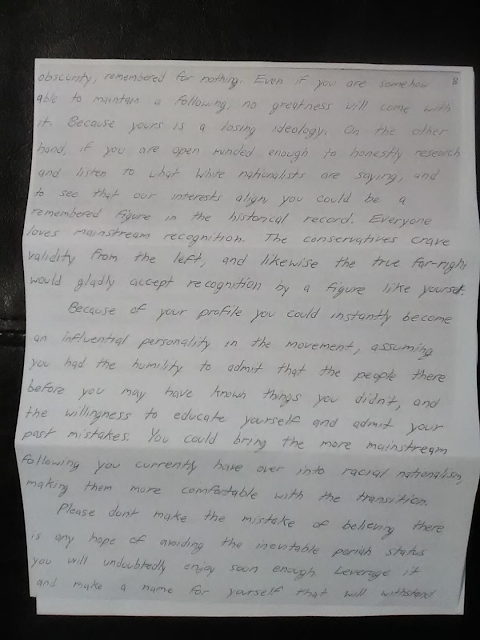 8
obscurity, remembered for nothing. Even if you are somehow
able to maintain a following, no greatness will come with
it. Because yours is a losing ideology. On the other
hand, if you are open minded enough to honestly research
and listen to what white nationalists are saying, and
to see that our interests align, you could be a
remembered figure in the historical record. Everyone
loves mainstream recognition. The conservatives crave
validity from the left, and likewise the true far-right
would gladly accept recognition by a figure like yourself.
Because of your profile you could instantly become
an influential personality in the movement, assuming
you had the humility to admit that the people there
before you may have known things you didn't, and
the willingness to educate yourself and admit your
past mistakes. You could bring the more mainstream
following you currently have over into racial nationalism,
making them more comfortable with the transition.
Please dont make the mistake of believing there
is any hope of avoiding the inevitable pariah status
you will undoubtedly enjoy soon enough. Leverage it
and make a name for yourself that will withstand